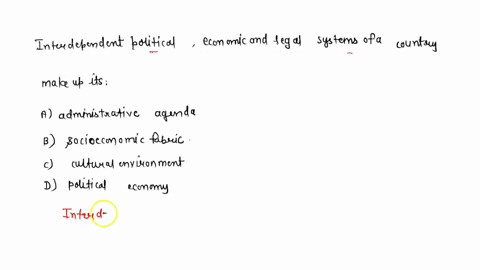 Interdependent political , economic and legal systems of a country
make up its:
A) administrative agenda
B) socioeconomic fabric.
C) cultural environment
D) political economy
Interd-